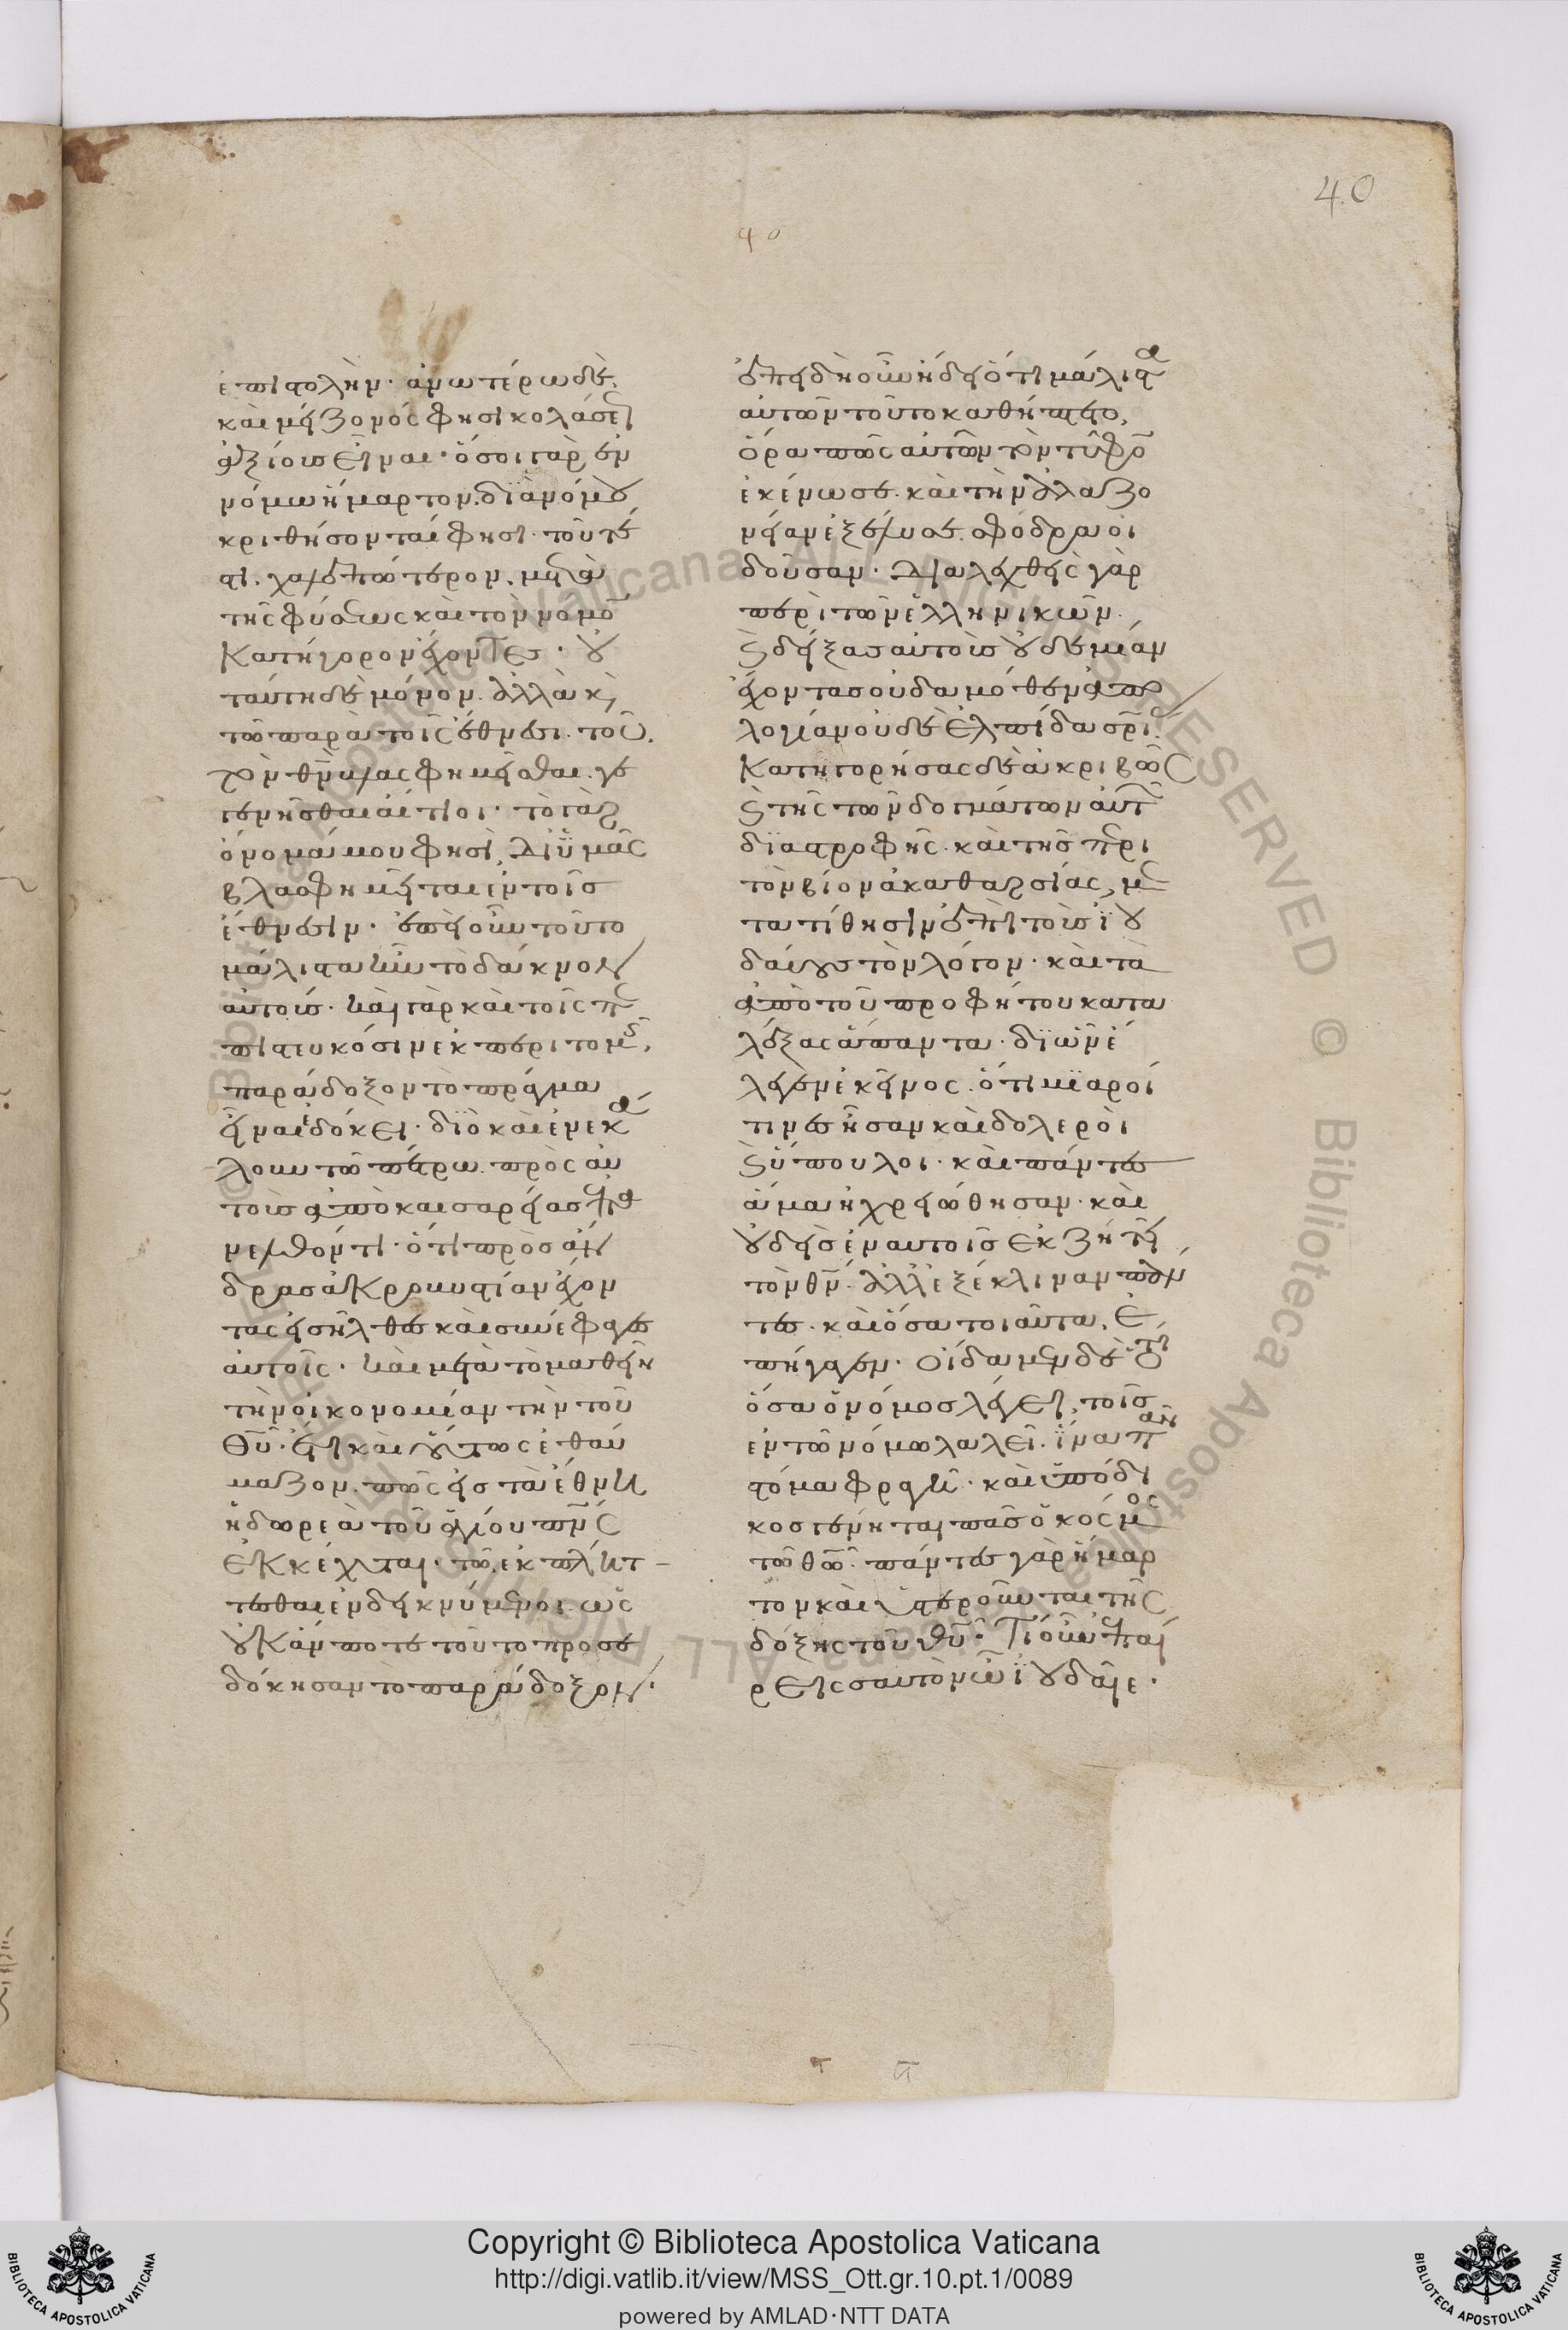 40
40
ἐπιστολήν· ἀνωτέρω δὲ,
καὶ μείζονός φησι κολάσε
ἀξίους εἶναι· ὅσοι γὰρ ἐν
νόμω ἥμαρτον. διὰ νόμου
κριθήσονταί φησι· τοῦτέ
στι, χαλεπώτερον, μετὰ
τῆς φύσεως καὶ τὸν νόμο
κατήγορον ἔχοντες· οὐ
ταύτη δὲ μόνον. ἀλλὰ κ
τῶ παρὰ τοῖς ἔθνεσι. τοῦ
τὸν θν ὑμας φημεῖσθαι. γε
γενῆσθαι αἴτιοι· τὸ γὰρ
ὄνομά μου φησὶ, δι ὑμᾶς
βλασφημεῖται ἐν τοῖς
ἔθνεσιν· ἐπεὶ οὖν τοῦτο
μάλιστα ἦν τὸ δάκνον
αὐτούς· καὶ γὰρ καὶ τοῖς π
πιστευκόσιν ἐκ περιτομ
παράδοξον τὸ πρᾶγμα
εἶναι ἐδόκει· διὸ καὶ ἐνεκά
λουν τῶ πέτρω. πρὸς αὐ
τοὺς ἀπὸ καισαρείας ἐπα
νελθόντι· ὅτι πρὸς ἄν
δρας ἀκροβυστίαν ἔχον
τας εἰσῆλθες καὶ συνέφαγες
αὐτοῖς· καὶ μετὰ τὸ μαθεῖν
τὴν οἰκονομίαν τὴν τοῦ
θῦ· ἔτι καὶ οὕτως ἐθαύ
μαζον. πῶς εἰς τὰ ἔθνη
ἡ δωρεὰ τοῦ ἁγίου πνς
ἐκκέχυται· τῶ ἐκπλήτ
τεσθαι ἐνδεικνύμενοι. ὡς
οὐκ ἄν ποτε τοῦτο προσε
δόκησαν τὸ παράδοξον·
ἐπεὶ δὴ οὖν ἤδει ὅτι μάλιστα
αὐτῶν τοῦτο καθήπτετο,
ὅρα πῶς αὐτῶν τὸν τῦφο
ἐκένωσε. καὶ τὴν ἀλαζο
νείαν ἐξέλυσε. σφόδρα οἰ
δοῦσαν· διαλεχθεὶς γὰρ
περὶ τῶν ἑλληνικῶν.
κ δείξας αὐτοὺς οὐδεμίαν
ἔχοντας οὐδαμόθεν ἀπο
λογίαν οὐδὲ ἐλπίδα σρι
κατηγορήσας δὲ ἀκριβῶς
κ τῆς τῶν δογμάτων αὐτ
διαστροφῆς. καὶ τῆς περι
τὸν βίον ἀκαθαρσίας, με
τατίθησιν ἐπὶ τοὺς ἰου
δαίους τὸν λόγον· καὶ τὰ
ἀπὸ τοῦ προφήτου κατα
λέξας ἅπαντα· δι ὧν ἔ
λεγεν ἐκεῖνος. ὅτι μιαροί
τινες ἦσαν καὶ δολεροὶ
κ ὕπουλοι· καὶ πάντες
ἅμα ἠχρειώθησαν· καὶ
οὐδεὶς ἐν αὐτοῖς ἐκζητεῖ
τὸν θν. ἀλλ ἐξέκλιναν πάν
τες. καὶ ὅσα τοιαῦτα. ἐ
πήγαγεν· οἴδαμεν δὲ ὅτι
ὅσα ὁ νόμος λέγει, τοῖς
ἐν τῶ νόμω λαλεῖ. ἵνα πᾶν
στόμα φραγῆ· καὶ ὑπόδι
κος γένηται πᾶς ὁ κόσμος
τῶ θῶ· πάντες γὰρ ἥμαρ
τον καὶ ὑστεροῦνται τῆς
δόξης τοῦ θῦ· Τί οὖν ἐπαί
ρεις σαυτὸν ὦ ἰουδαῖε·
Copyright © Biblioteca Apostolica Vaticana
http://digi.vatlib.it/view/MSS_Ott.gr.10.pt.1/0089
powered by AMLAD·NTT DATA